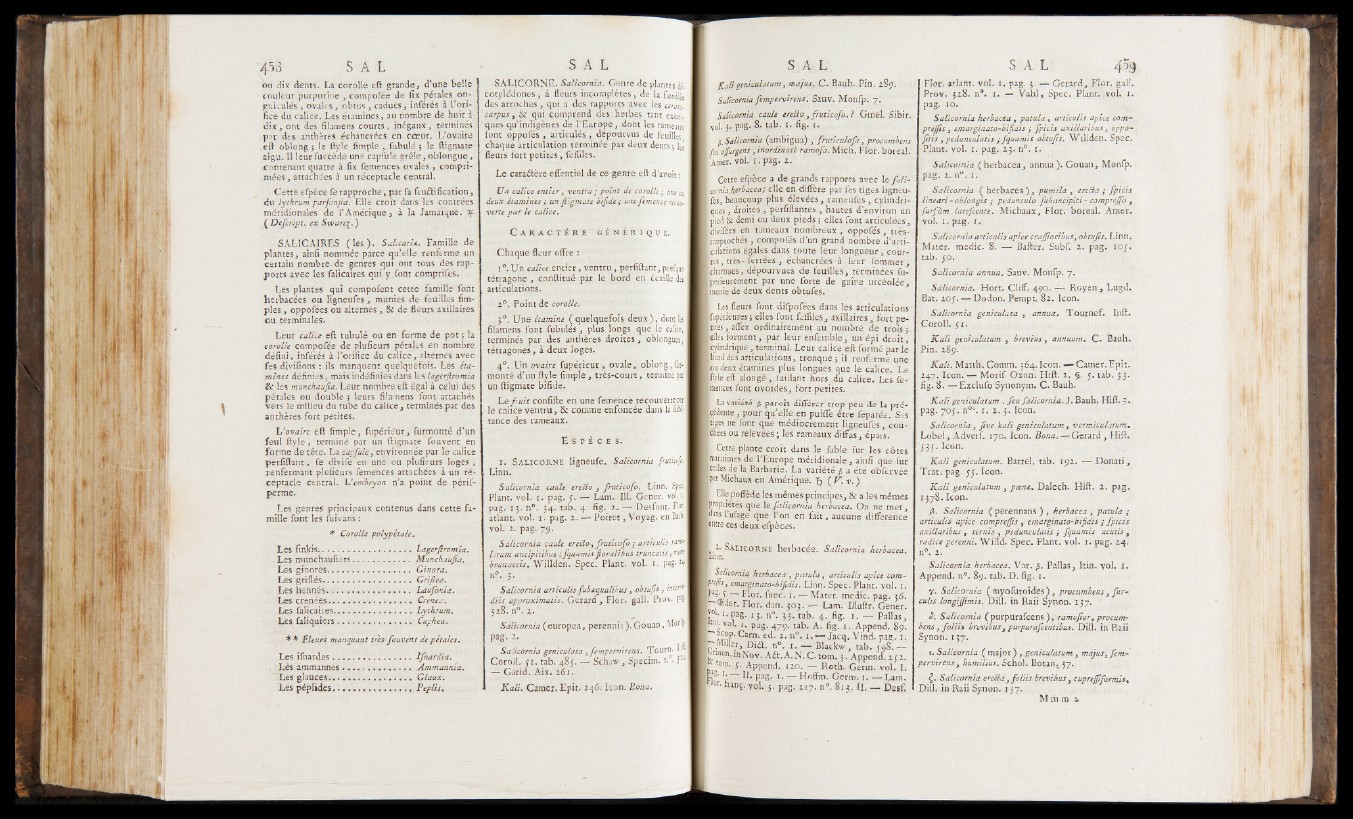 458 S A L
ou dix dents. La corolle eſt grande, d'une belle
couleur purpurine, compoſée de ſix pétales on-
guiculés, ovales, obtus, caducs, inférés à l'ori-
fice du calice. Les étamines, au nombre de huit à
dix, ont des filamens courts, inégaux, terminés
par des anthères échancrées en cœur. L'ovaire
eſt oblong; le ſtyle ſimple, ſubulé; le ſtigmate
aigu. Il leur ſuccède une capſule grêle, oblongue,
contenant quatre à ſix ſemences ovales, compri-
mées, attachées à un réceptacle central.
Cette eſpèce ſe rapproche, par ſa fructification,
du lythrum parſonſia. Elle croît dans les contrées
méridionales de l'Amérique, à la Jamaïque. ♃
(Deſcript. ex Swartz.)
SALICAIRES (les). Salicaria. Famille de
plantes, ainſi nommée parce qu'elle renferme un
certain nombre de genres qui ont tous des rap-
ports avec les ſalicaires qui y ſont compriſes.
Les plantes qui compoſent cette famille ſont
herbacées ou ligneuſes, munies de feuilles ſim-
ples, oppoſées ou alternes, & de fleurs axillaires
ou terminales.
Leur calice eſt tubulé ou en forme de pot; la
corolle compoſée de pluſieurs pétales en nombre
défini, inférés à l'orifice du calice, alternes avec
ſes diviſions: ils manquent quelquefois. Les éta-
mines définies, mais indéfinies dans les lagerſtromia
& les munchauſia. Leur nombre eſt égal à celui des
pétales ou double; leurs filamens ſont attachés
vers le milieu du tube du calice, terminés par des
anthères fort petites.
L'ovaire eſt ſimple, ſupérieur, ſurmonté d'un
ſeul ſtyle, terminé par un ſtigmate ſouvent en
forme de tête. La capſule, environnée par le calice
perſiſtant, ſe diviſe en une ou pluſieurs loges,
renfermant pluſieurs ſemences attachées à un ré-
ceptacle central. L'embryon n'a point de périſ-
perme.
Les genres principaux contenus dans cette fa-
mille ſont les ſuivans:
* Corolle polypétale.
Les ſinkis.................. Lagerſtromia.
Les munchauſiers........... Munchauſia.
Les ginores................. Ginora.
Les griſlés.................. Griſlea.
Les hennés.................. Lauſonia.
Les crenées................. Crenea.
Les ſalicaires............... Lythrum.
Les ſaliquiers............... Cuphea.
** Fleurs manquant très-ſouvent de pétales.
Les iſnardes................ Iſnardia.
Les ammannes............... Ammannia.
Les glauces................. Glaux.
Les péplides................ Peplis.
S A L
SALICORNE. Salicornia. Genre de plantes di-
cotylédones, à fleurs incomplètes, de la famille
des arroches, qui a des rapports avec les cerato-
carpus, & qui comprend des herbes tant exoti-
ques qu'indigènes de l'Europe, dont les rameaux
ſont oppoſés, articulés, dépourvus de feuilles,
chaque articulation terminée par deux dents; les
fleurs fort petites, ſeſſiles.
Le caractère eſſentiel de ce genre eſt d'avoir:
Un calice entier, ventru; point de corolle; une ou
deux étamines; un ſtigmate bifide; une ſemence recou-
verte par le calice.
CARACTÈRE GÉNÉRIQUE.
Chaque fleur offre:
1°. Un calice entier, ventru, perſiſtant, preſque
tétragone, conſtitué par le bord en écaille des
articulations.
2°. Point de corolle.
3°. Une étamine (quelquefois deux), dont les
filamens ſont ſubulés, plus longs que le calice,
terminés par des anthères droites, oblongues,
tétragones, à deux loges.
4°. Un ovaire ſupérieur, ovale, oblong, ſur-
monté d'un ſtyle ſimple, très-court, terminé par
un ſtigmate bifide.
Le fruit conſiſte en une ſemence recouverte par
le calice ventru, & comme enfoncée dans la ſubſ-
tance des rameaux.
ESPÈCES.
1. SALICORNE ligneuſe. Salicornia fruticoſa.
Linn.
Salicornia caule erecto, fruticoſo. Linn. Spec.
Plant. vol. 1. pag. 5. — Lam. Ill. Gener. vol. 1.
pag. 13. n°. 34. tab. 4. fig. 2. — Desfont. Flor.
atlant. vol. 1. pag. 2. — Poiret, Voyag. en Barb.
vol. 2. pag. 79.
Salicornia caule erecto, fruticoſo; articulis ramu-
lorum ancipitibus; ſquamis floralibus truncatis, mem-
branaceis. Willden. Spec. Plant. vol. 1. pag. 24.
n°. 3.
Salicornia articulis ſubæqualibus, obtuſis, inter-
diis approximatis. Gerard, Flor. gall. Prov. pag.
328. n°. 2.
Salicornia (europea, perennis). Gouan, Monſp.
pag. 2.
Salicornia geniculata, ſempervirens. Tourn. Inſt.
Coroll. 51. tab. 485. — Schaw, Specim. n°.
— Garid. Aix. 261.
Kali. Camer. Epit. 246. Icon. Bona.
S A L
Kali geniculatum, majus. C. Bauh. Pin. 289.
Salicornia ſempervirens. Sauv. Monſp. 7.
Salicornia caule erecto, fruticoſo.? Gmel. Sibir.
vol. 3. pag. 8. tab. 1. fig. 1.
β. Salicornia (ambigua), fruticuloſa, procumbens
ſeu aſſurgens, inordinatè ramoſa. Mich. Flor. boreal.
Amer. vol. 1. pag. 2.
Cette eſpèce a de grands rapports avec le ſali-
cornia herbacea; elle en diffère par ſes tiges ligneu-
ſes, beaucoup plus élevées, rameuſes, cylindri-
ques, droites, perſiſtantes, hautes d'environ un
pied & demi ou deux pieds; elles ſont articulées,
diviſées en rameaux nombreux, oppoſés, très-
rapprochés, compoſés d'un grand nombre d'arti-
culations égales dans toute leur longueur, cour-
tes, très-ſerrées, échancrées à leur ſommet,
charnues, dépourvues de feuilles, terminées ſu-
périeurement par une ſorte de gaîne urcéolée,
munie de deux dents obtuſes.
Les fleurs ſont diſpoſées dans les articulations
ſupérieures; elles ſont ſeſſiles, axillaires, fort pe-
tites, aſſez ordinairement au nombre de trois;
elles forment, par leur enſemble, un épi droit,
cylindrique, terminal. Leur calice eſt formé par le
bord des articulations, tronqué; il renferme une
ou deux étamines plus longues que le calice. Le
ſtyle eſt alongé, ſaillant hors du calice. Les ſe-
mences ſont ovoïdes, fort petites.
La variété β paroît différer trop peu de la pré-
cédente, pour qu'elle en puiſſe être ſéparée. Ses
tiges ne ſont que médiocrement ligneuſes, cou-
chées ou relevées; les rameaux diffus, épars.
Cette plante croît dans le ſable ſur les côtes
maritimes de l'Europe méridionale, ainſi que ſur
celles de la Barbarie. La variété β a été obſervée
par Michaux en Amérique. ♄ (V. v.)
Elle poſſède les mêmes principes, & a les mêmes
propriétés que le ſalicornia herbacea. On ne met,
dans l'uſage que l'on en fait, aucune différence
entre ces deux eſpèces.
2. SALICORNE herbacée. Salicornia herbacea.
Linn.
Salicornia herbacea, patula, articulis apice com-
preſſis, emarginato-bifidis. Linn. Spec. Plant. vol. 1.
pag. 5. — Flor. ſuec. 1. — Mater. medic. pag. 36.
— Œder. Flor. dan. 303. — Lam. Illuſtr. Gener.
vol. 1. pag. 13. n°. 33. tab. 4. fig. 1. — Pallas,
Itin. vol. 1. pag. 479. tab. A. fig. 1. Append. 89.
— Scop. Carn. ed. 2. n°. 1. — Jacq. Vind. pag. 1.
— Miller, Dict. n°. 1. — Blackw, tab. 598. —
Grimm. in Nov. Act. A. N. C. tom. 3. Append. 252.
& tom. 5. Append. 120. — Roth. Germ. vol. I.
pag. 1. — II. pag. 1. — Hoffm. Germ. 1. — Lam.
Flor. franç. vol. 3. pag. 217. n°. 813. II. — Desf.
S A L 459
Flor. atlant. vol. 1. pag. 3. — Gerard, Flor. gall.
Prov. 328. n°. 1. — Vahl, Spec. Plant. vol. 1.
pag. 10.
Salicornia herbacea, patula, articulis apice com-
preſſis, emarginato-bifidis; ſpicis axillaribus, oppo-
ſitis, pedunculatis; ſquamis obtuſis. Willden. Spec.
Plant. vol. 1. pag. 23. n°. 1.
Salicornia (herbacea, annua). Gouan, Monſp.
pag. 2. n°. 1.
Salicornia (herbacea), pumila, erecta; ſpicis
lineari-oblongis; pedunculo ſubancipiti-compreſſo,
ſurſùm lateſcente. Michaux, Flor. boreal. Amer.
vol. 1. pag. 1.
Salicornia articulis apice craſſioribus, obtuſis. Linn.
Mater. medic. 8. — Baſter. Subſ. 2. pag. 105.
tab. 50.
Salicornia annua. Sauv. Monſp. 7.
Salicornia. Hort. Cliff. 490. — Royen, Lugd.
Bat. 205. — Dodon. Pempt. 82. Icon.
Salicornia geniculata, annua. Tournef. Inſt.
Coroll. 51.
Kali geniculatum, brevius, annuum. C. Bauh.
Pin. 289.
Kali. Matth. Comm. 364. Icon. — Camer. Epit.
247. Icon. — Moriſ. Oxon. Hiſt. 2. §. 5. tab. 33.
fig. 8. — Excluſo Synonym. C. Bauh.
Kali geniculatum, ſeu ſalicornia. J. Bauh. Hiſt. 3.
pag. 705. nos. 1. 2. 3. Icon.
Salicornia, ſive kali geniculatum, vermiculatum.
Lobel, Adverſ. 170. Icon. Bona. — Gerard, Hiſt.
535. Icon.
Kali geniculatum. Barrel. tab. 192. — Donati,
Trat. pag. 55. Icon.
Kali geniculatum, pœna. Dalech. Hiſt. 2. pag.
1378. Icon.
β. Salicornia (perennans), herbacea, patula;
articulis apice compreſſis, emarginato-bifidis; ſpicis
axillaribus, ternis, pedunculatis; ſquamis acutis,
radice perenni. Willd. Spec. Plant. vol. 1. pag. 24.
n°. 2.
Salicornia herbacea. Var. β. Pallas, Itin. vol. 1.
Append. n°. 89. tab. D. fig. 1.
γ. Salicornia (myoſuroides), procumbens, ſur-
culis longiſſimis. Dill. in Raii Synon. 137.
δ. Salicornia (purpuraſcens), ramoſior, procum-
bens, foliis brevibus, purpuraſcentibus. Dill. in Raii
Synon. 137.
ε. Salicornia (major), geniculatum, majus, ſem-
pervirens, humilius. Schol. Botan. 57.
ζ. Salicornia erecta, foliis brevibus, cupreſſiformis.
Dill. in Raii Synon. 137.
M m m 2